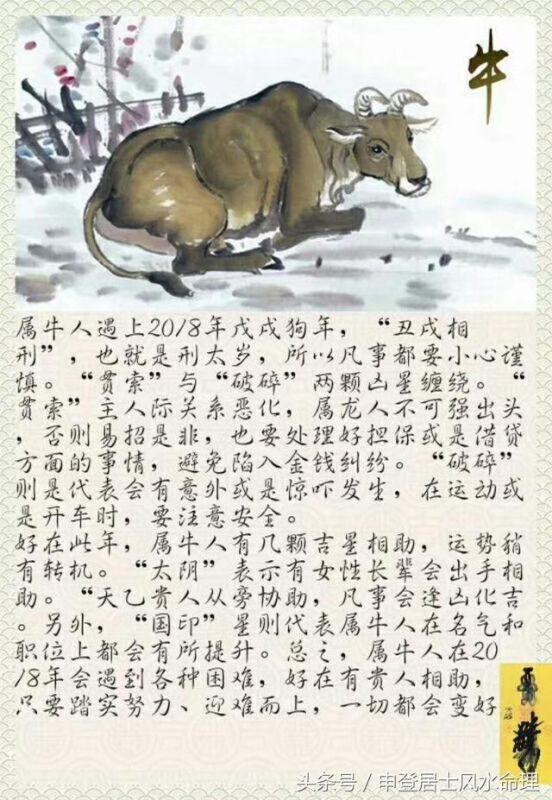 牛
属牛人遇上2018年戊戌狗年，“丑戌相
刑”，也就是刑太岁，所以凡事都要小心谨
慎。“贯索”与“破碎”两颗凶星缠绕。“
贯索”主人际关系恶化，属龙人不可强出头
，否则易招是非，也要处理好担保或是借贷
方面的事情，避免陷入金钱纠纷。“破碎”
则是代表会有意外或是惊吓发生，在运动或
是开车时，要注意安全。
好在此年，属牛人有几颗吉星相助，运势稍
有转机。“太阴”表示有女性长辈会出手相
助。“天乙贵人从旁协助，凡事会逢凶化吉
。另外，“国印”星则代表属牛人在名气和
职位上都会有所提升。总之，属牛人在20
18年会遇到各种困难，好在有贵人相助，
只要踏实努力、迎难而上，一切都会变好
头条号/申登居士风水命理